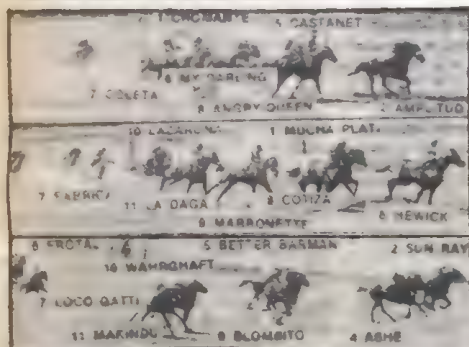 CROISANTE 5 CASTANET
6 MY DARLING
7 COLETA 8 ANGRY QUEEN AMPLITUD
10 LAZARONA 1 MUCHA PLATA
7 FABRICA 11 LA DAGA COTIZA 8 HEWICK
9 MARRONETTE
5 BETTER BASMAN 2 SUN RAY
10 WAHRSHAFT
7 LOCO GATTI
11 MAKINDU 9 BLOMBITO 4 ASHE